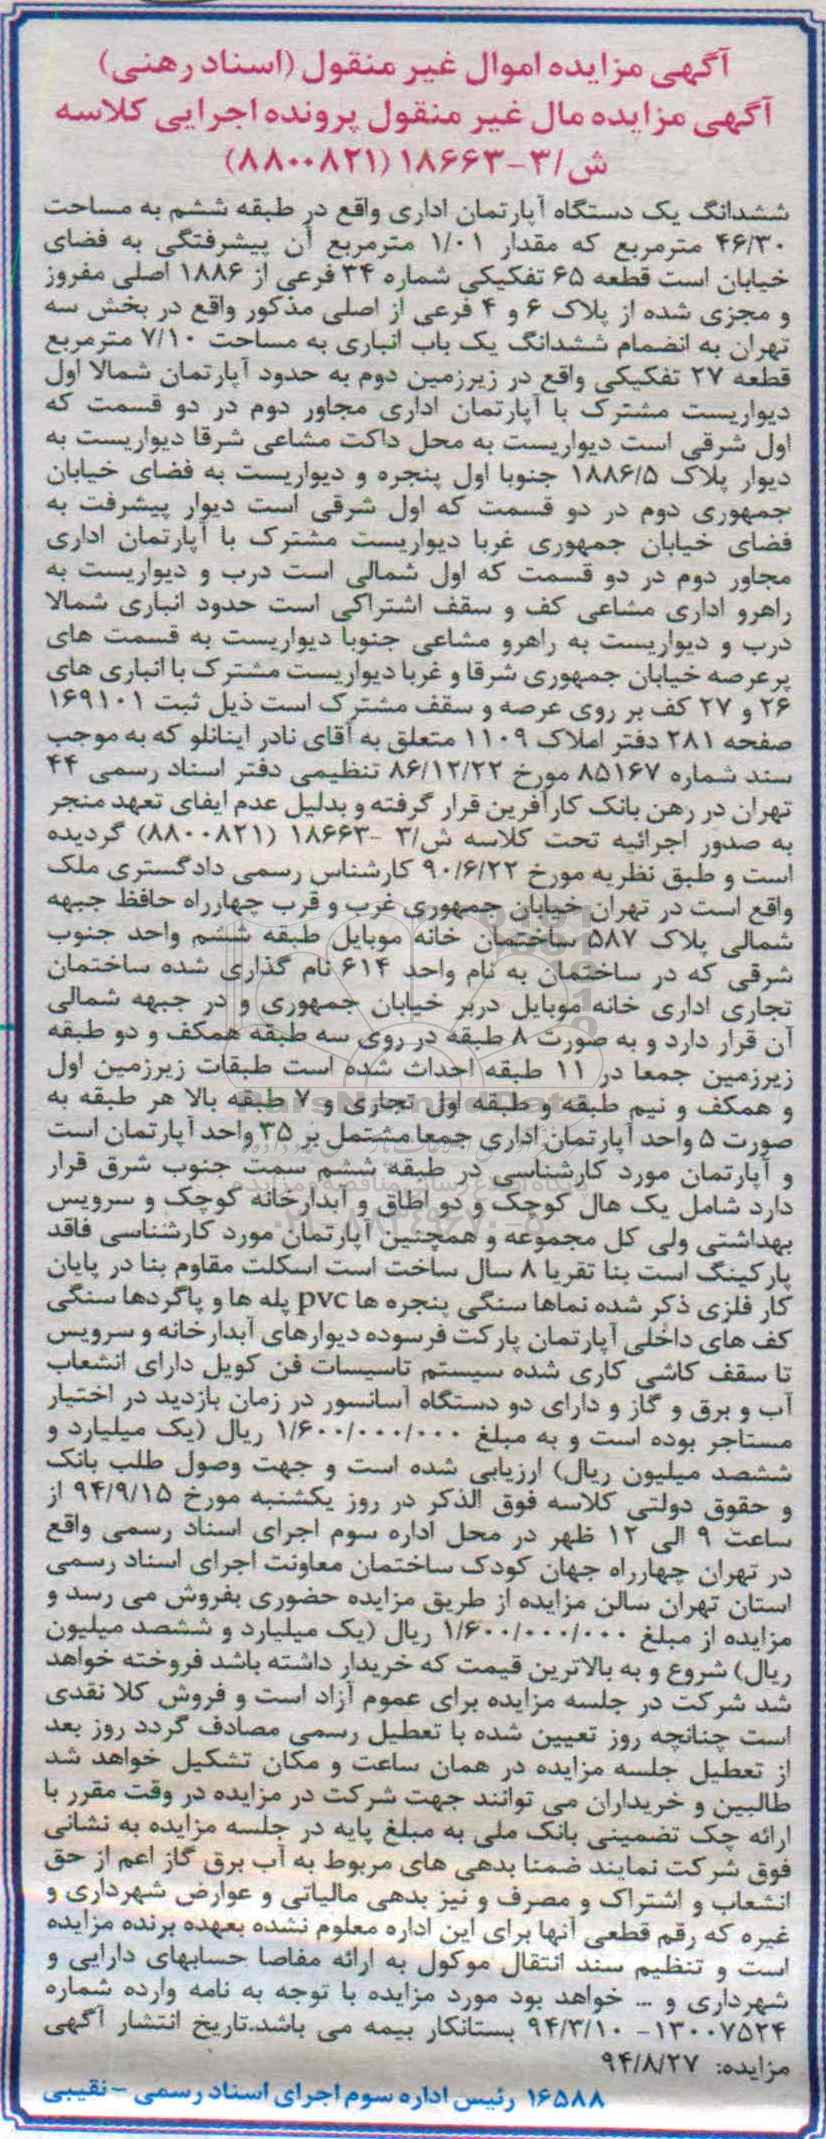 آگهی مزایده اموال غیر منقول (اسناد رهنی)
آگهی مزایده مال غیر منقول پرونده اجرایی کلاسه
ش/۳-۱۸۶۶۳ (۸۸۰۰۸۲۱)
ششدانگ یک دستگاه آپارتمان اداری واقع در طبقه ششم به مساحت
۴۶/۳۰ مترمربع که مقدار ۱/۰۱ مترمربع آن پیشرفتگی به فضای
خیابان است قطعه ۶۵ تفکیکی شماره ۳۴ فرعی از ۱۸۸۶ اصلی مفروز
و مجزی شده از پلاک ۶ و ۴ فرعی از اصلی مذکور واقع در بخش سه
تهران به انضمام ششدانگ یک باب انباری به مساحت ۷/۱۰ مترمربع
قطعه ۲۷ تفکیکی واقع در زیرزمین دوم به حدود آپارتمان شمالا اول
دیواریست مشترک با آپارتمان اداری مجاور دوم در دو قسمت که
اول شرقی است دیواریست به محل داکت مشاعی شرقا دیواریست به
دیوار پلاک ۱۸۸۶/۵ جنوبا اول پنجره و دیواریست به فضای خیابان
جمهوری دوم در دو قسمت که اول شرقی است دیوار پیشرفت به
فضای خیابان جمهوری غربا دیواریست مشترک با آپارتمان اداری
مجاور دوم در دو قسمت که اول شمالی است درب و دیواریست به
راهرو اداری مشاعی کف و سقف اشتراکی است حدود انباری شمالا
درب و دیواریست به راهرو مشاعی جنوبا دیواریست به قسمت های
پرعرصه خیابان جمهوری شرقا و غربا دیواریست مشترک با انباری های
۲۶ و ۲۷ کف بر روی عرصه و سقف مشترک است ذیل ثبت ۱۶۹۱۰۱
صفحه ۲۸۱ دفتر املاک ۱۱۰۹ متعلق به آقای نادر اینانلو که به موجب
سند شماره ۸۵۱۶۷ مورخ ۸۶/۱۲/۲۲ تنظیمی دفتر اسناد رسمی ۴۴
تهران در رهن بانک کارآفرین قرار گرفته و بدلیل عدم ایفای تعهد منجر
به صدور اجرائیه تحت کلاسه ش/۳ -۱۸۶۶۳ (۸۸۰۰۸۲۱) گردیده
است و طبق نظریه مورخ ۹۰/۶/۲۲ کارشناس رسمی دادگستری ملک
واقع است در تهران خیابان جمهوری غرب و قرب چهارراه حافظ جبهه
شمالی پلاک ۵۸۷ ساختمان خانه موبایل طبقه ششم واحد جنوب
شرقی که در ساختمان به نام واحد ۶۱۴ نام گذاری شده ساختمان
تجاری اداری خانه موبایل دربر خیابان جمهوری و در جبهه شمالی
آن قرار دارد و به صورت ۸ طبقه در روی سه طبقه همکف و دو طبقه
زیرزمین جمعا در ۱۱ طبقه احداث شده است طبقات زیرزمین اول
و همکف و نیم طبقه و طبقه اول تجاری و ۷ طبقه بالا هر طبقه به
صورت ۵ واحد آپارتمان اداری جمعا مشتمل بر ۳۵ واحد آپارتمان است
و آپارتمان مورد کارشناسی در طبقه ششم سمت جنوب شرق قرار
دارد شامل یک هال کوچک و دو اطاق و آبدارخانه کوچک و سرویس
بهداشتی ولی کل مجموعه و همچنین آپارتمان مورد کارشناسی فاقد
پارکینگ است بنا تقریا ۸ سال ساخت است اسکلت مقاوم بنا در پایان
کار فلزی ذکر شده نماها سنگی پنجره ها pvc پله ها و پاگردها سنگی
کف های داخلی آپارتمان پارکت فرسوده دیوارهای آبدارخانه و سرویس
تا سقف کاشی کاری شده سیستم تاسیسات فن کویل دارای انشعاب
آب و برق و گاز و دارای دو دستگاه آسانسور در زمان بازدید در اختیار
مستاجر بوده است و به مبلغ ۱/۶۰۰/۰۰۰/۰۰۰ ریال (یک میلیارد و
ششصد میلیون ریال) ارزیابی شده است و جهت وصول طلب بانک
و حقوق دولتی کلاسه فوق الذکر در روز یکشنبه مورخ ۹۴/۹/۱۵ از
ساعت ۹ الی ۱۲ ظهر در محل اداره سوم اجرای اسناد رسمی واقع
در تهران چهارراه جهان کودک ساختمان معاونت اجرای اسناد رسمی
استان تهران سالن مزایده از طریق مزایده حضوری بفروش می رسد و
مزایده از مبلغ ۱/۶۰۰/۰۰۰/۰۰۰ ریال (یک میلیارد و ششصد میلیون
ریال) شروع و به بالاترین قیمت که خریدار داشته باشد فروخته خواهد
شد شرکت در جلسه مزایده برای عموم آزاد است و فروش کلا نقدی
است چنانچه روز تعیین شده با تعطیل رسمی مصادف گردد روز بعد
از تعطیل جلسه مزایده در همان ساعت و مکان تشکیل خواهد شد
طالبین و خریداران می توانند جهت شرکت در مزایده در وقت مقرر با
ارائه چک تضمینی بانک ملی به مبلغ پایه در جلسه مزایده به نشانی
فوق شرکت نمایند ضمنا بدهی های مربوط به آب برق گاز اعم از حق
انشعاب و اشتراک و مصرف و نیز بدهی مالیاتی و عوارض شهرداری و
غیره که رقم قطعی آنها برای این اداره معلوم نشده بعهده برنده مزایده
است و تنظیم سند انتقال موکول به ارائه مفاصا حسابهای دارایی و
شهرداری و ... خواهد بود مورد مزایده با توجه به نامه وارده شماره
۱۳۰۰۷۵۲۴- ۹۴/۳/۱۰ بستانکار بیمه می باشد.تاریخ انتشار آگهی
مزایده: ۹۴/۸/۲۷
۱۶۵۸۸ رئیس اداره سوم اجرای اسناد رسمی - نقیبی